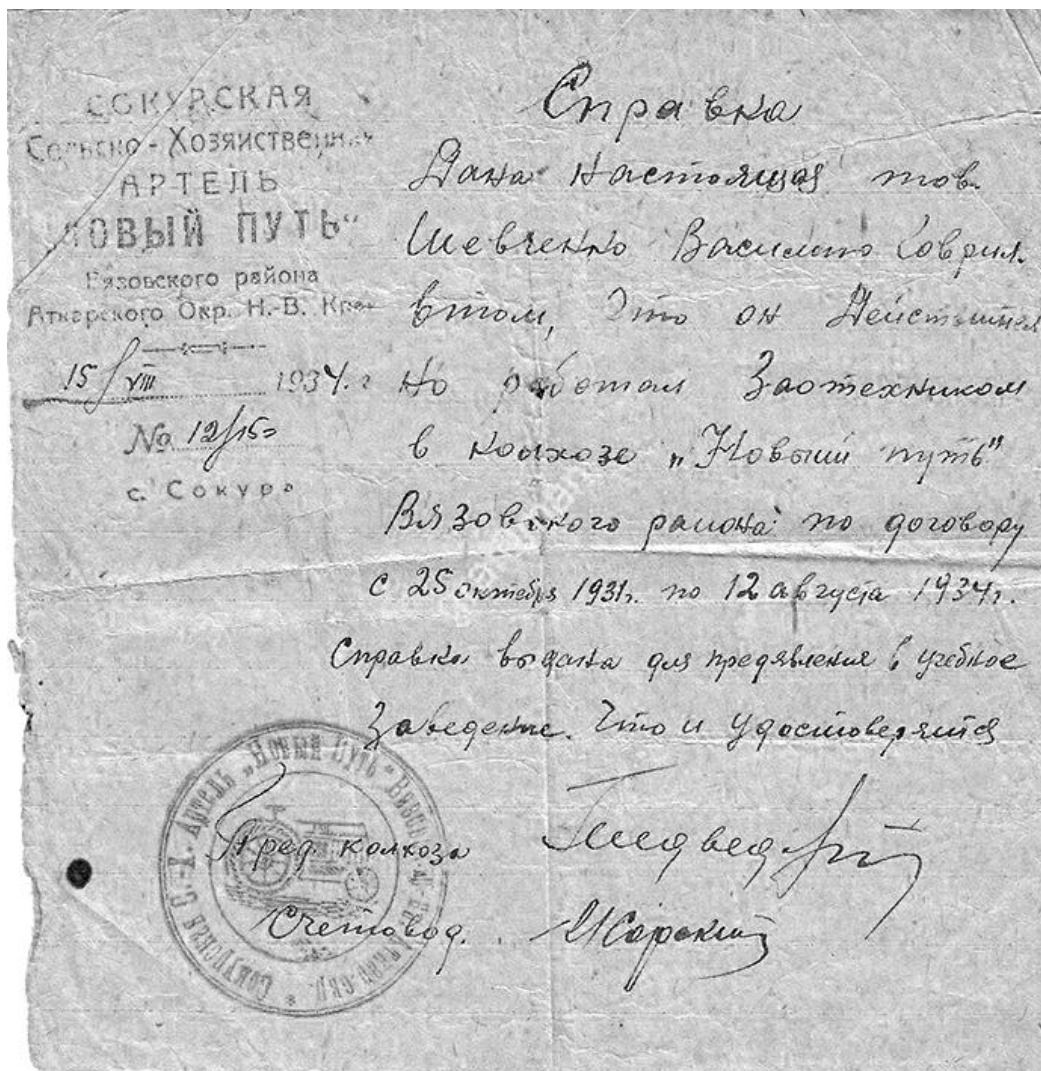 СОКУРСКАЯ
Сельско-Хозяйственная
АРТЕЛЬ
"НОВЫЙ ПУТЬ"
Вязовского района
Аткарского Окр. Н.-В. Края
15/VIII 1934. г
№ 12/15
с. Сокура
Справка
Дана настоящая тов.
Шевченко Василию Гаврил.
втом, Что он Действител
но работал Заотехником
в колхозе „Новый путь"
Вязовского района по договору
с 25 октября 1931г. по 12 августа 1934г.
Справка выдана для предявления в учебное
Заведение. Что и удостоверяится
Пред. колхоза Медведев
Счетовод.
СОКУРСКАЯ С.-Х. АРТЕЛЬ „НОВЫЙ ПУТЬ"